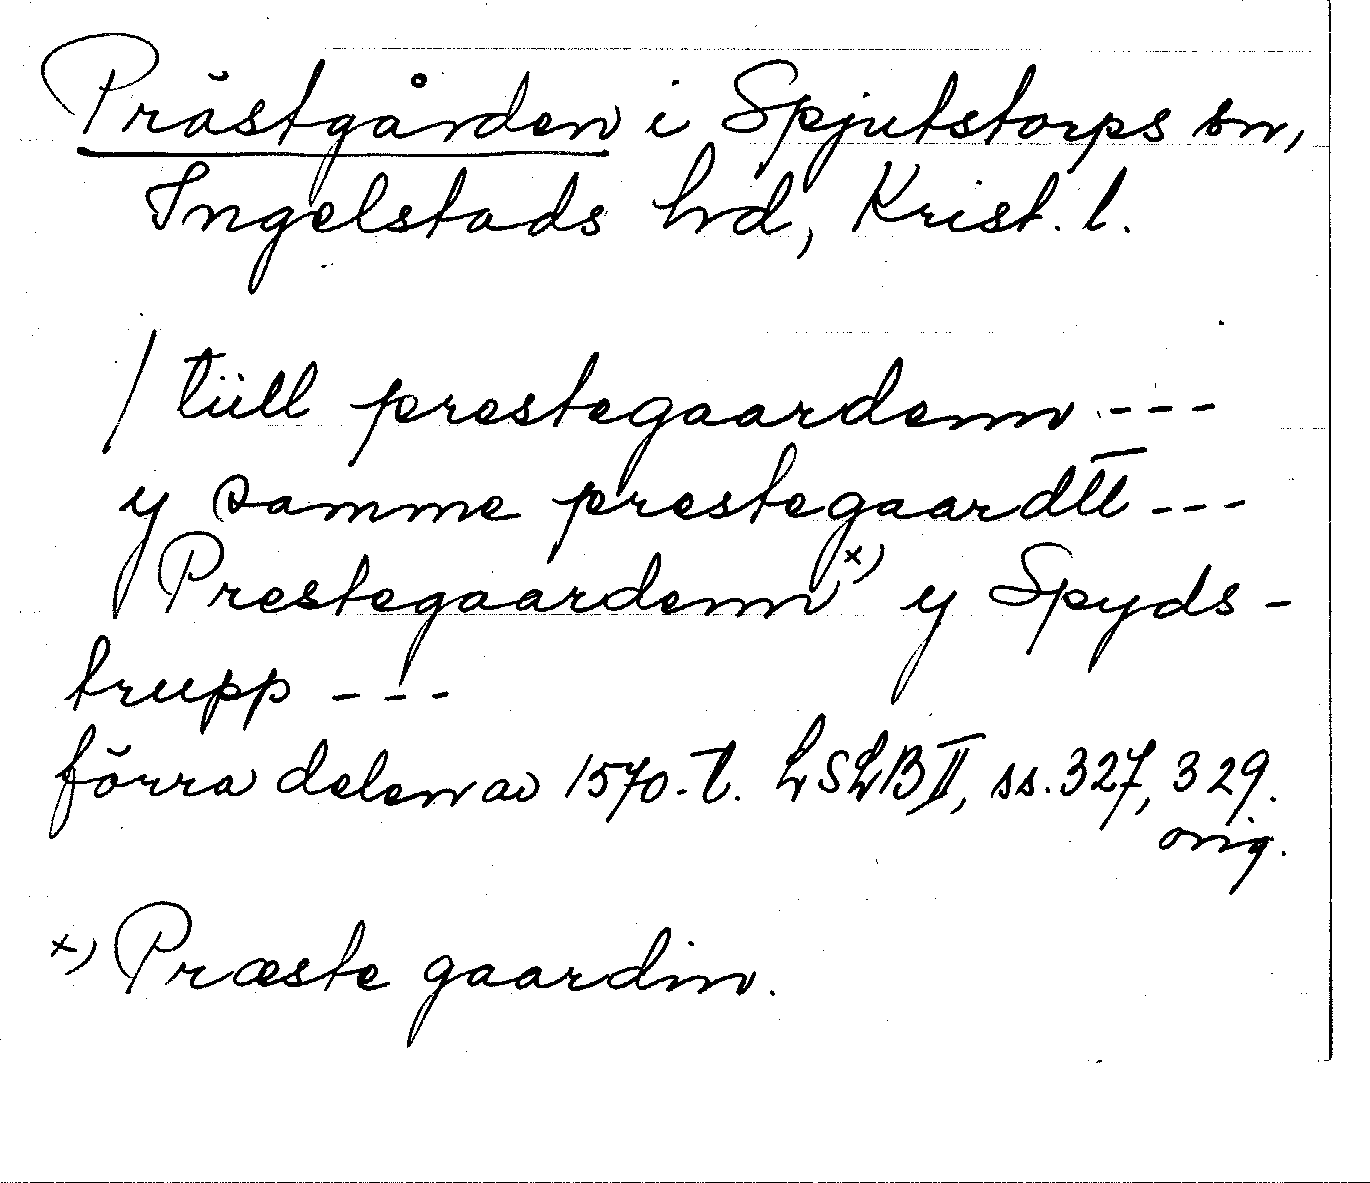 Prästgården i Spjutstorps sn,
Ingelstads hrd, Krist. l.
/ tüll prestegaardenn ---
y samme prestegaardtt ---
Prestegaardenn x) y Spyds-
trupp ---
förra delen av 1570-t. LSLB II, ss. 327, 329.
orig.
x) Præste gaardin.